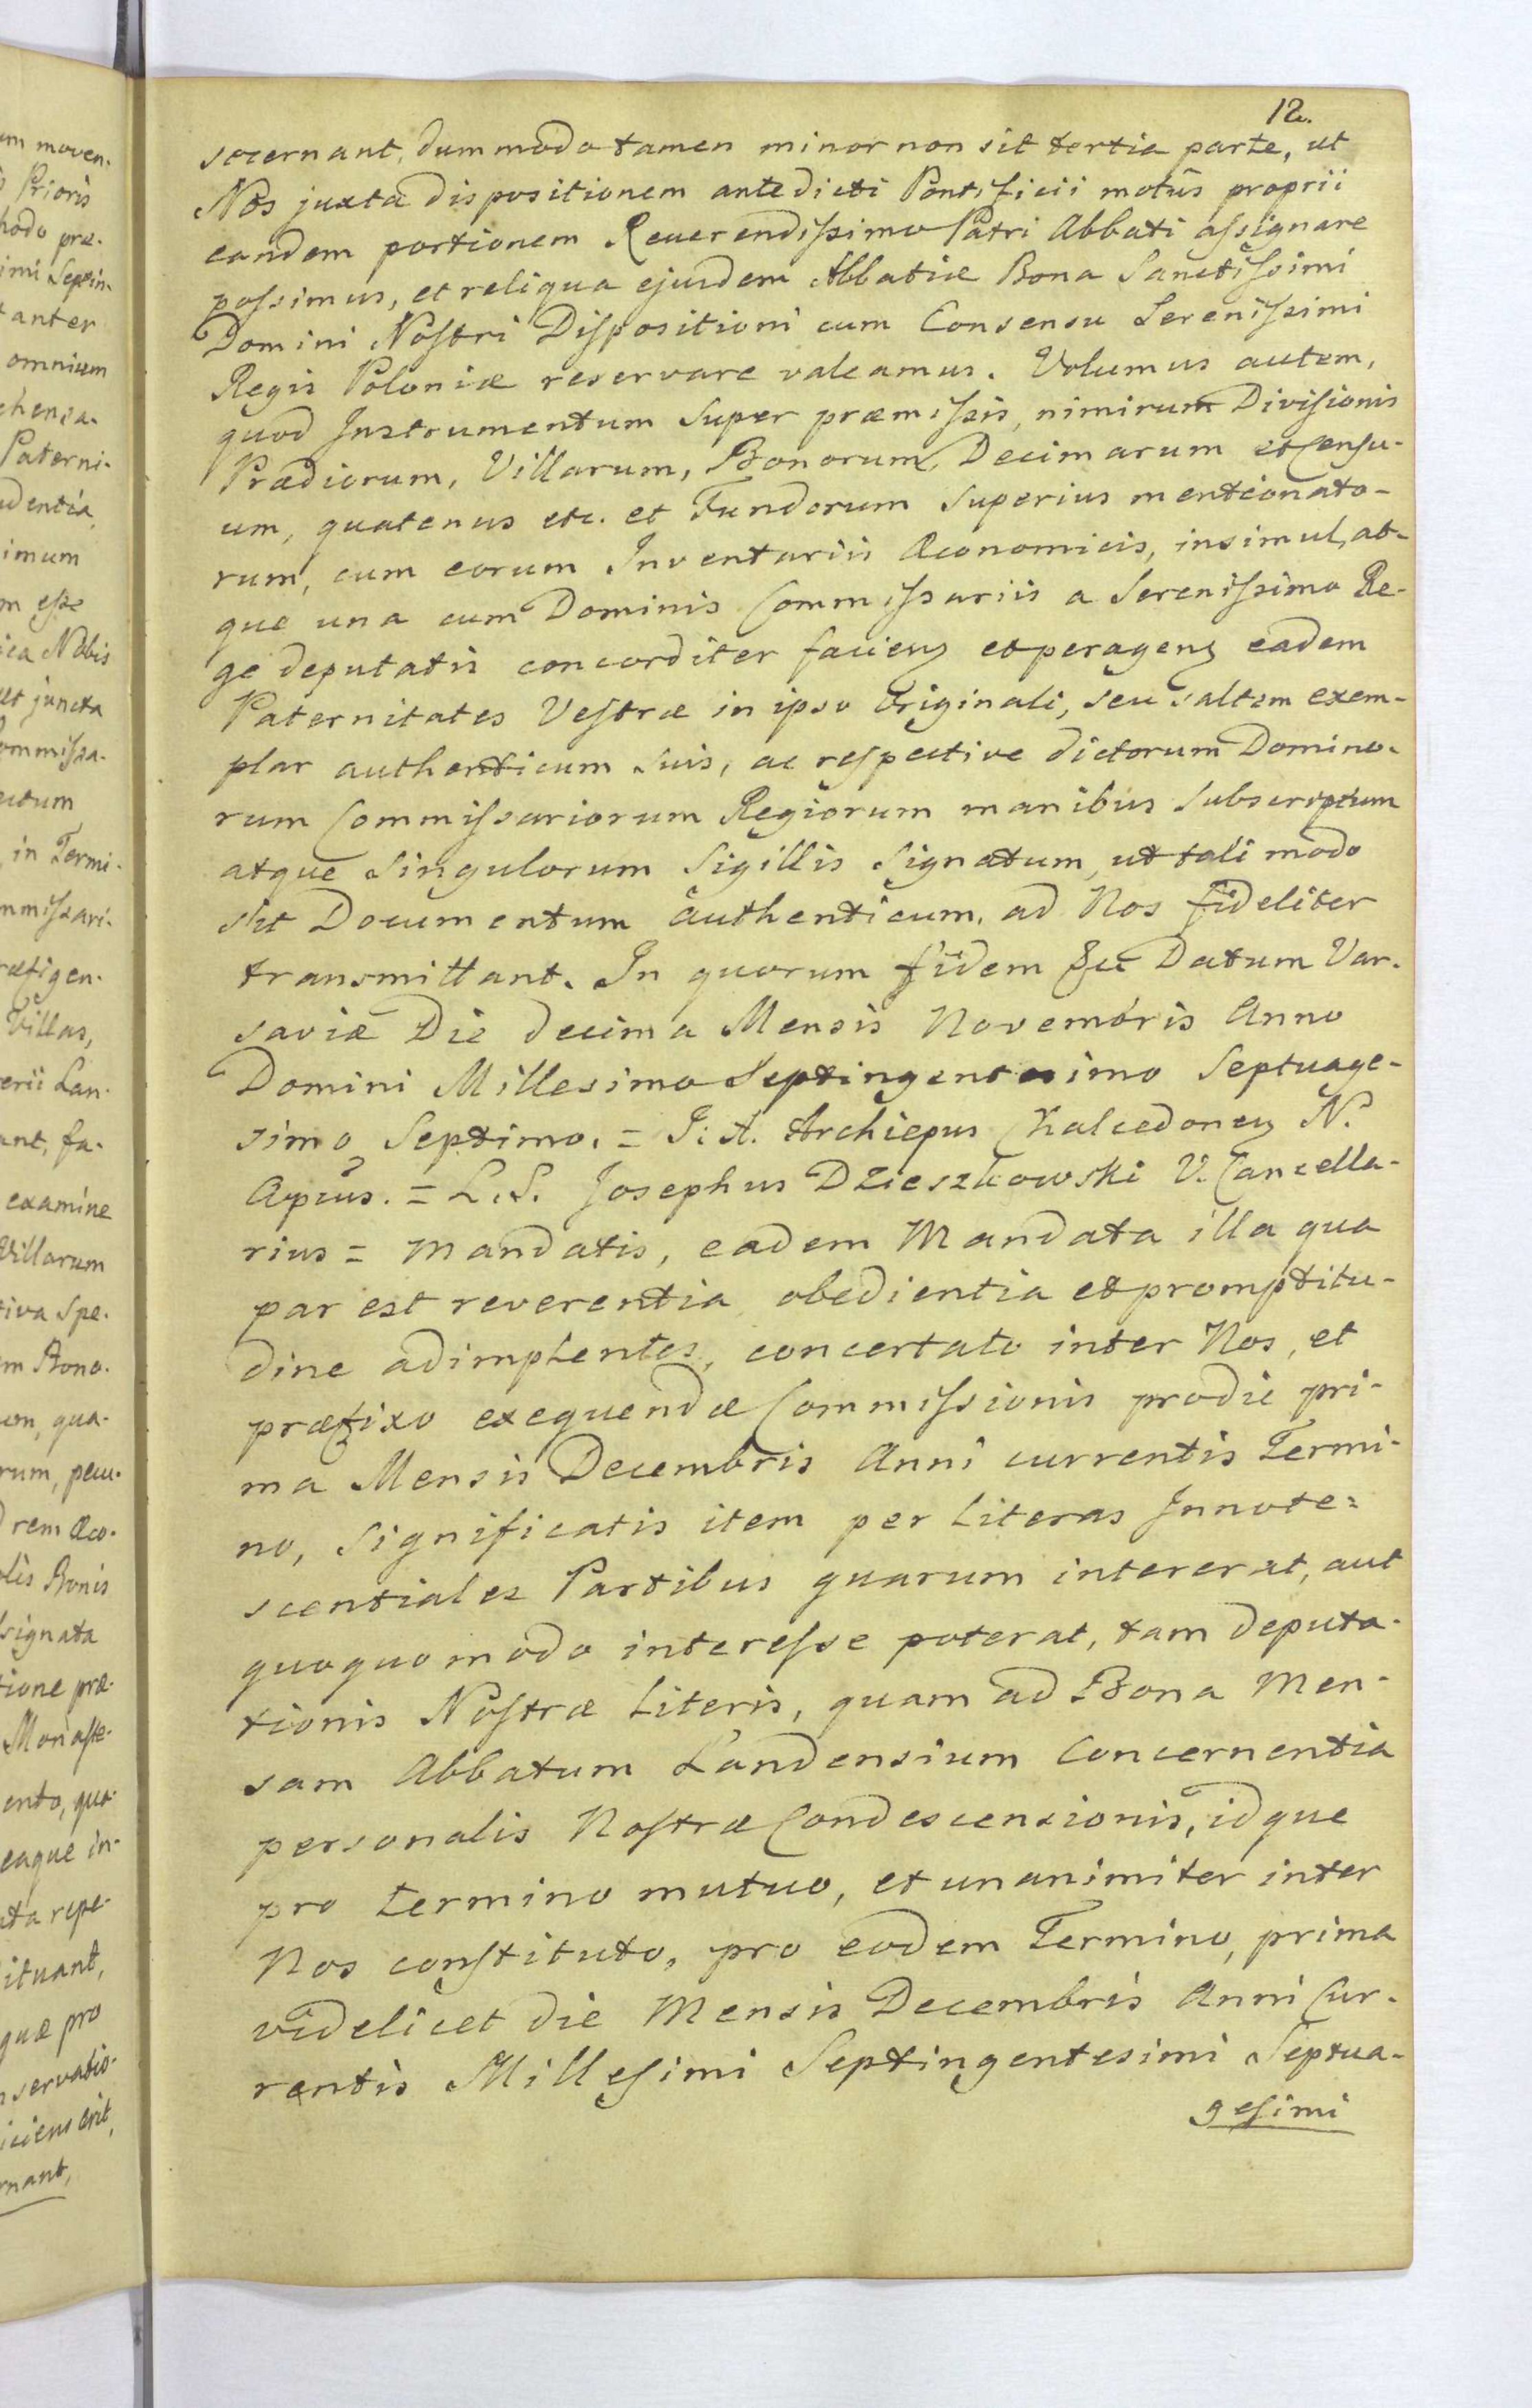 12.
secernant, dummodo tamen minor non sit tertia parte, ut
Nos juxta dispositionem antedicti Pontificii motus proprii
eandem portionem Reverendissimo Patri Abbati assignare
possimus, et reliqua ejusdem Abbatiæ Bona Sanctissimi
Domini Nostri Dispositioni cum Consensu Serenissimi
Regis Poloniæ reservare valeamus. Volumus autem,
quod Instrumentum super præmissis, nimirum Divisionis
Prædiorum, Villarum, Bonorum, Decimarum et Censu-
um, quatenus etc. et Fundorum superius mentionato-
rum, cum eorum Inventariis Œconomicis, insimul, at-
que una cum Dominis Commissariis a Serenissimo Re-
ge deputatis concorditer faciens et peragens eadem
Paternitates Vestræ in ipso Originali, seu saltem exem-
plar authenticum suis, ac respective dictorum Domino-
rum Commissariorum Regiorum manibus subscriptum
atque singulorum Sigillis signatum, ut tali modo
sit Documentum authenticum, ad Nos fideliter
transmittant. In quorum fidem &c Datum Var-
saviæ Die decima Mensis Novembris Anno
Domini Millesimo Septingentesimo Septuage-
simo Septimo. = J: A. Archiepus Chalcedonens N.
Aplicus. = L.S. Josephus Dzieszkowski V. Cancella-
rius = mandatis, eadem Mandata illa qua
par est reverentia obedientia et promptitu-
dine adimplentes, concertato inter Nos, et
præfixo exequendæ Commissionis pro die pri-
ma Mensis Decembris Anni currentis Termi-
no, significatis item per Literas Innote=
scentiales Partibus quarum intererat, aut
quoquomodo interesse poterat, tam deputa-
tionis Nostræ Literis, quam ad Bona Men-
sam Abbatum Landensium Concernentia
personalis Nostræ Condescensionis, idque
pro termino mutuo, et unanimiter inter
Nos constituto, pro eodem Termino, prima
videlicet die Mensis Decembris Anni Cur-
rentis Millesimi Septingentesimi Septua-
gesimi